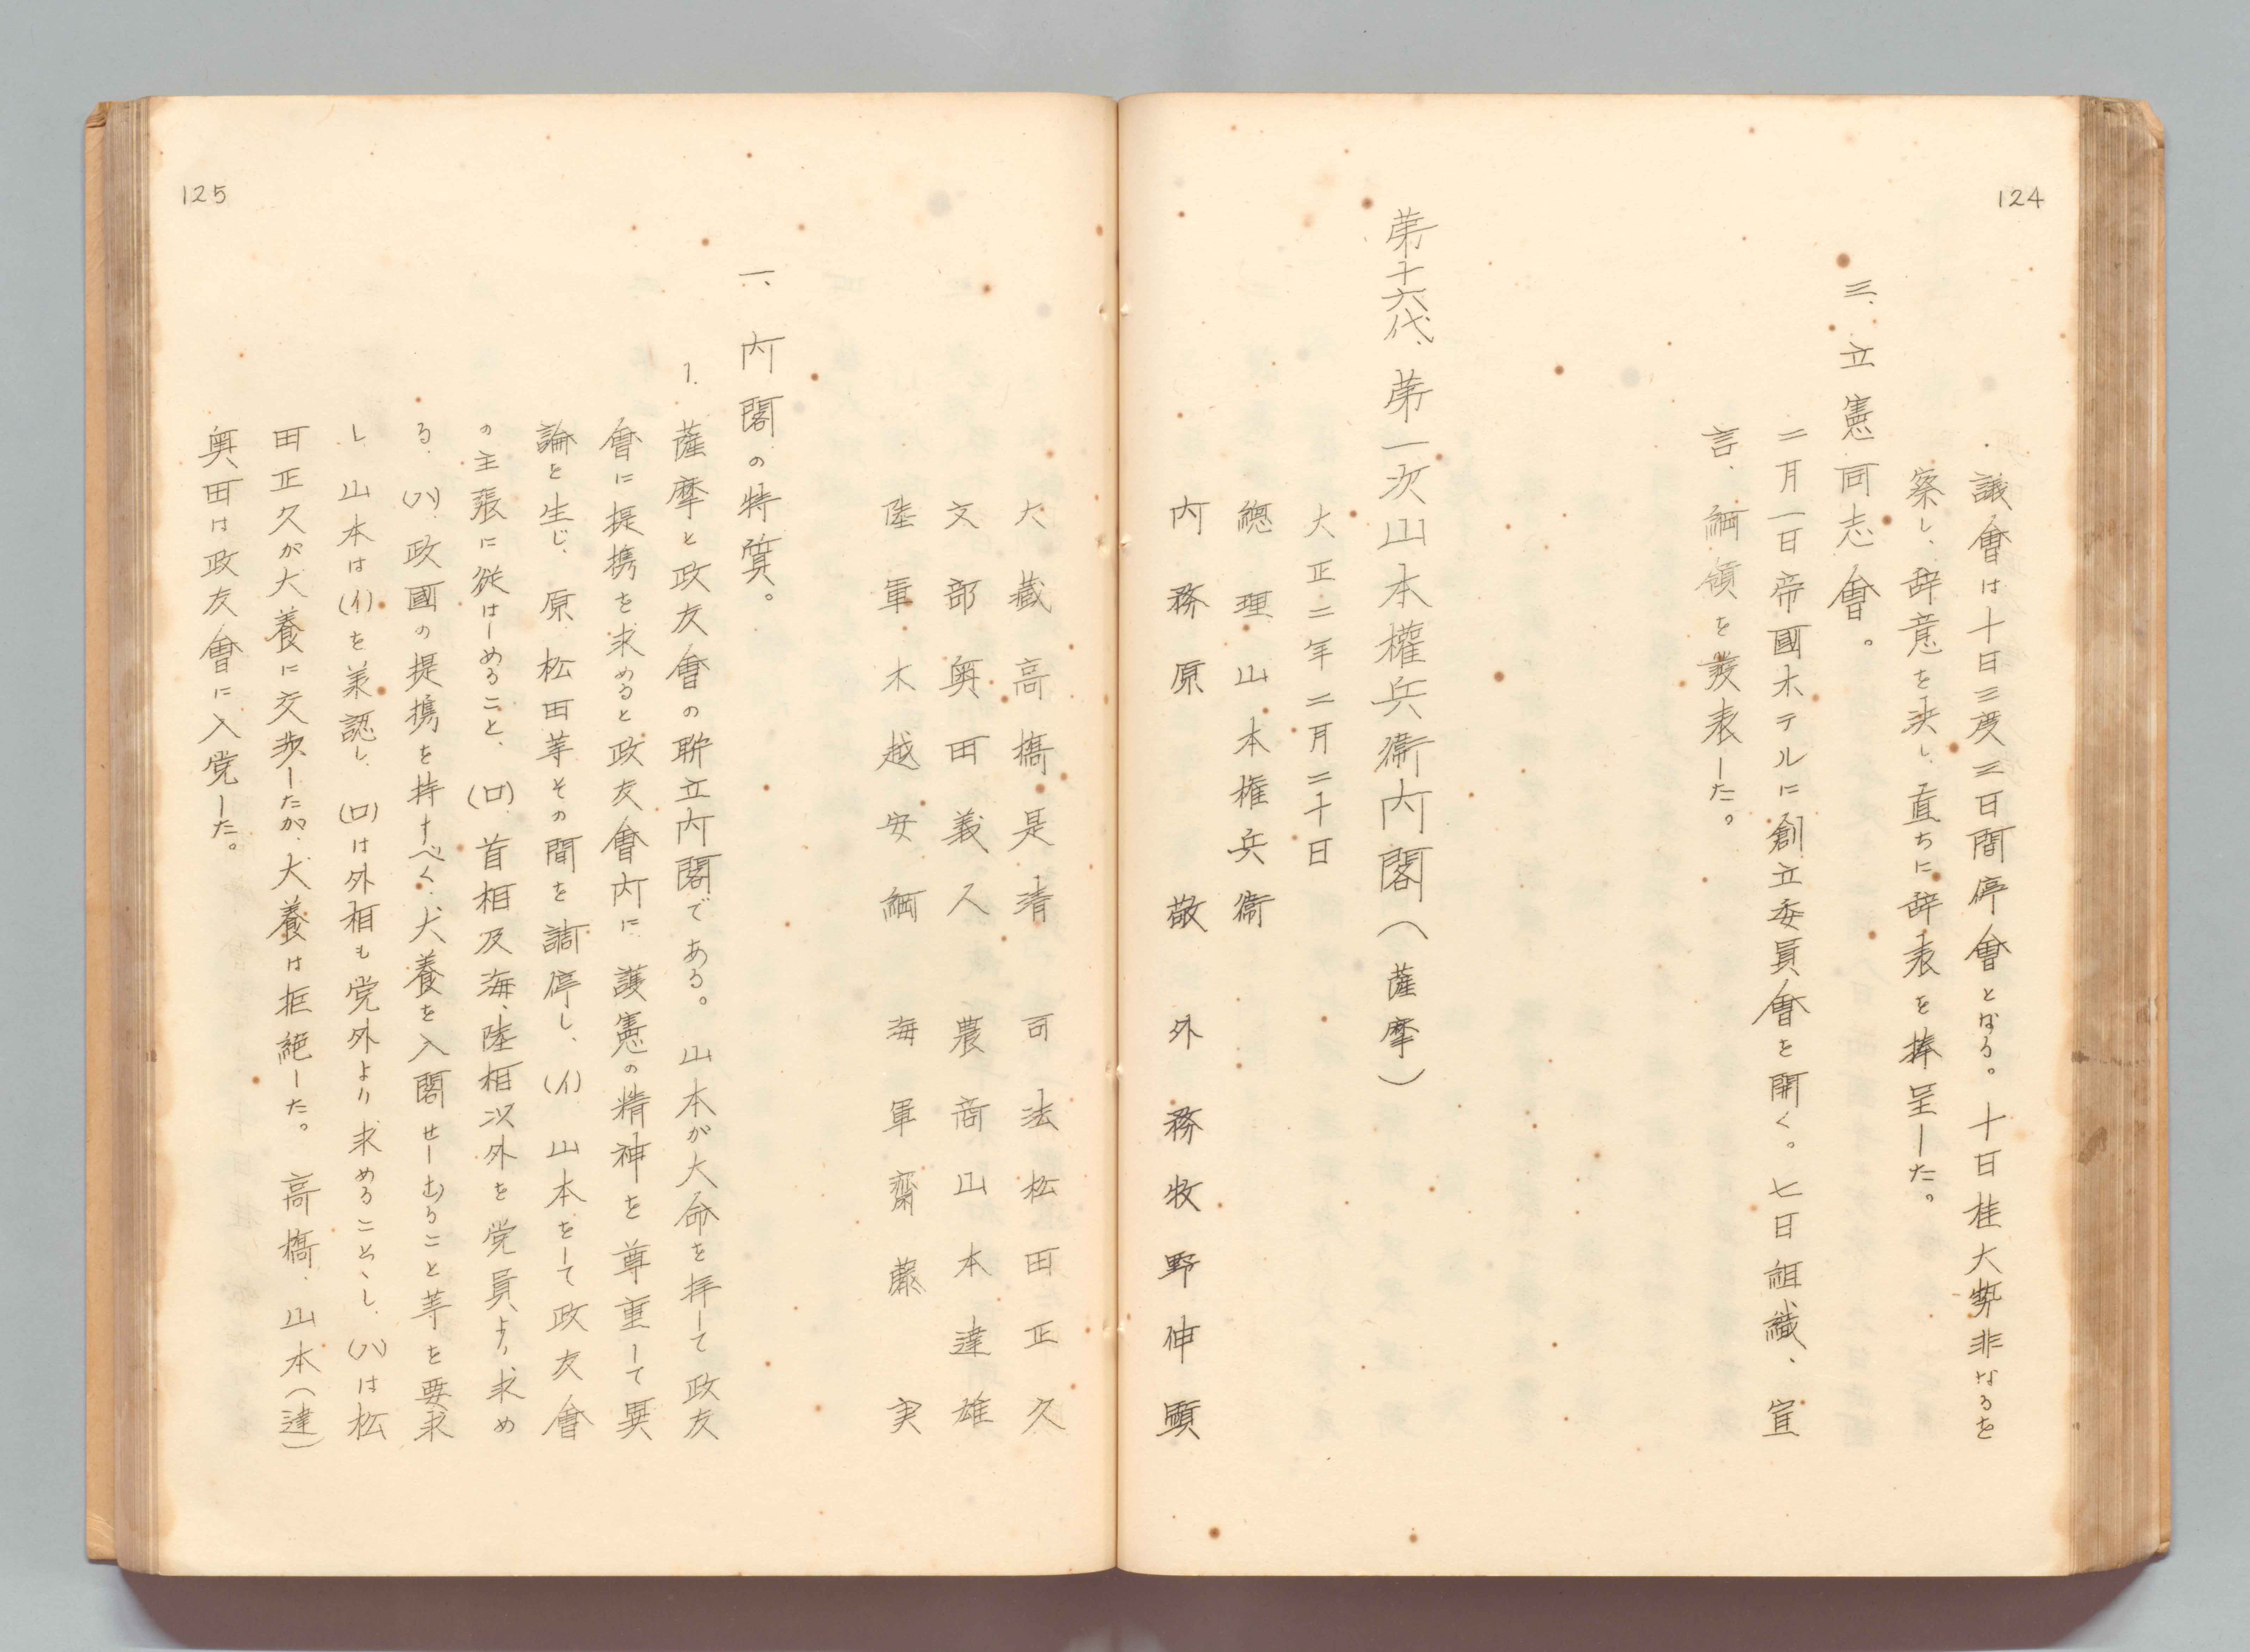 124
議會は十日三度三日間停會となる。十日桂大勢非なるを
察し、辞意を決し、直ちに辞表を捧呈した。
三、立憲同志會。
二月一日帝國ホテルに創立委員會を開く。七日組織、宣
言、綱領を発表した。
第十六代、第一次山本權兵衞内閣（薩摩）
大正二年二月二十日
總理山本権兵衞
内務原敬 外務牧野伸顕
125
大藏高橋是清 司法松田正久
文部奥田義人 農商山本達雄
陸軍木越安綱 海軍齋藤実
一、内閣の特質。
1. 薩摩と政友會の聯立内閣である。山本が大命を拝して政友
會に提携を求めると政友會内に護憲の精神を尊重して異
論を生じ、原、松田等その間を調停し、(イ)山本をして政友會
の主張に従はしめること、(ロ)首相及海、陸相以外を党員より求め
る、(ハ)政國の提携を持すべく、犬養を入閣せしむること等を要求
し、山本は(イ)を承認し、(ロ)は外相も党外より求めることゝし、(ハ)は松
田正久が犬養に交渉したが、犬養は拒絶した。高橋、山本（達）
奥田は政友會に入党した。